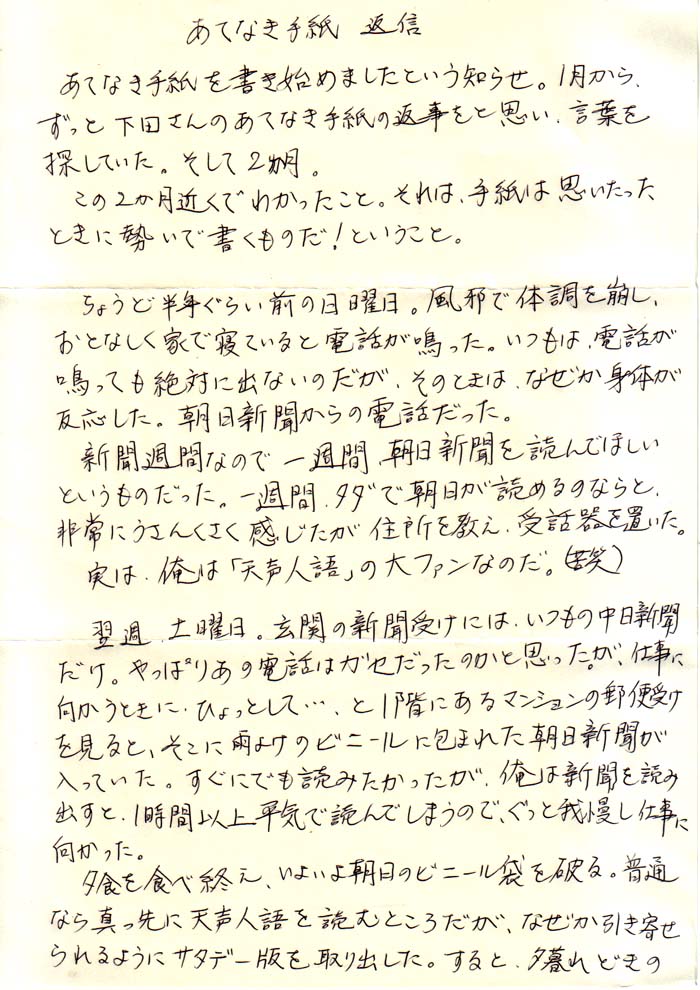 あてなき手紙 返信
あてなき手紙を書き始めましたという知らせ。1月から、
ずっと下田さんのあてなき手紙の返事をと思い、言葉を
探していた。そして2カ月。
この2か月近くでわかったこと。それは、手紙は思いたった
ときに勢いで書くものだ!ということ。
ちょうど半年ぐらい前の日曜日。風邪で体調を崩し、
おとなしく家で寝ていると電話が鳴った。いつもは、電話が
鳴っても絶対に出ないのだが、そのときは、なぜか身体が
反応した。朝日新聞からの電話だった。
新聞週間なので一週間、朝日新聞を読んでほしい
というものだった。一週間、タダで朝日が読めるのならと、
非常にうさんくさく感じたが住所を教え、受話器を置いた。
実は、俺は「天声人語」の大ファンなのだ。(苦笑)
翌週、土曜日。玄関の新聞受けには、いつもの中日新聞
だけ。やっぱりあの電話はガセだったのかと思ったが、仕事に
向かうときに、ひょっとして…、と1階にあるマンションの郵便受け
を見ると、そこに雨よけのビニールに包まれた朝日新聞が
入っていた。すぐにでも読みたかったが、俺は新聞を読み
出すと、1時間以上平気で読んでしまうので、ぐっと我慢し仕事に
向かった。
夕食を食べ終え、いよいよ朝日のビニール袋を破る。普通
なら真っ先に天声人語を読むところだが、なぜか引き寄せ
られるようにサタデー版を取り出した。すると、夕暮れどきの